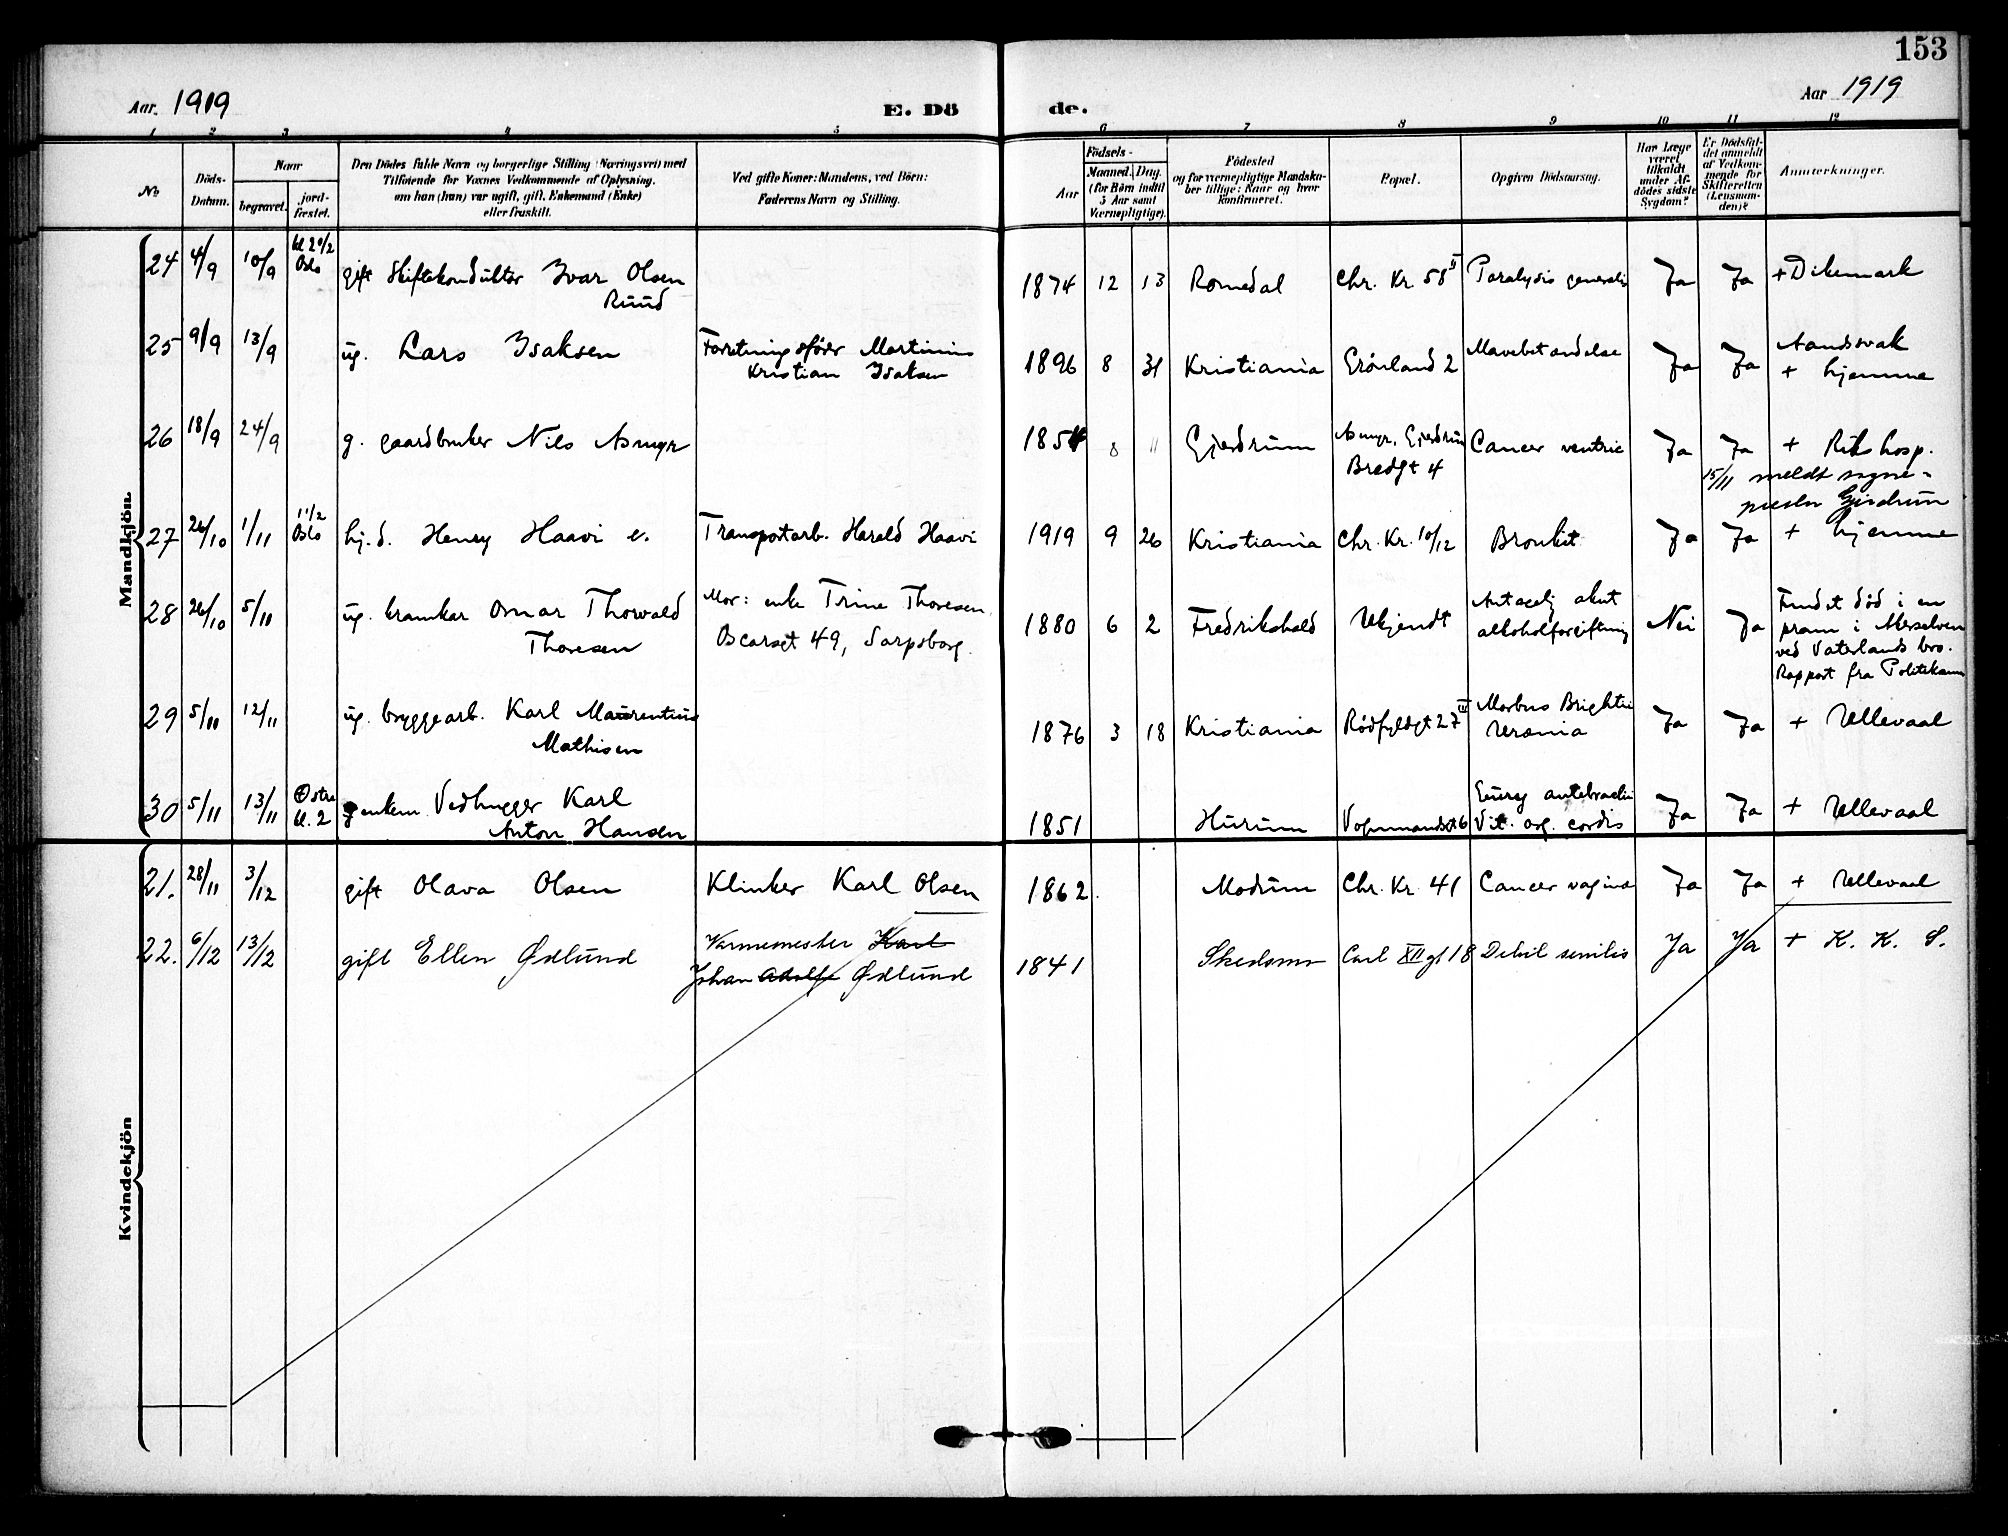 153
Aar. 1919
E. Dö
de.
Aar 1919
1 2 3 4 5 6 7 8 9 10 11 12
No
Döds-
Datum.
Naar
begravet.
jord-
fæstet.
Den Dödes fulde Navn og borgerlige Stilling (Næringsvei) med
Tilföiende for Voxnes Vedkommende af Oplysning,
om han (hun) var ugift, gift, Enkemand (Enke)
eller fraskilt.
Ved gifte Koner: Mandens, ved Börn:
Faderens Navn og Stilling.
Födsels-
Aar
Maaned. Dag.
(for Börn indtil
5 Aar samt
Værnepligtige).
Födested
og for værnepligtige Mandska-
ber tillige: Naar og hvor
konfirmeret.
Bopæl.
Opgiven Dödsaarsag.
Har Læge
været
tilkaldt
under Af-
dödes sidste
Sygdom?
Er Dödsfal-
det anmeldt
af Vedkom-
mende for
Skifteretten
(Lensman-
den)?
Anmærkninger.
Mandkjön
24 4/9 10/9 kl 2 0/2 Oslo gift Skiftekonduktør Ivar Olsen
Ruud
1874 12 13 Romedal Chr. Kr 58 II Paralysis generalis Ja Ja + Dikemark
25 9/9 13/9 ug. Lars Isaksen Forretningsfører Martinius
Kristian Isaksen
1896 8 31 Kristiania Grönland 2 Mavebetændelse Ja Ja Aandssvak
+ hjemme
26 18/9 24/9 g. gaardbruker Nils Asmyr
1854 8 " Gjerdrum Asmyr, Gjerdrum
Bredgt 4
Cancer ventric Ja Ja + Rikshosp.
15/11 meldt sogne-
presten Gjerdrum
27 26/10 1/11 11 1/2 Oslo hj.d. Henry Haavi e. Transportarb. Harald Haavi 1919 9 26 Kristiania Chr. Kr. 10/12 Bronkit Ja Ja + hjemme
28 26/10 5/11 ug. Omar Thorvald
Thoresen
Mor: enke Trine Thoresen
Oscarsgt 49, Sarpsborg.
1880 6 2 Fredrikshald Ukjendt Antagelig akut
alkoholforgiftning
Nei Ja Fundet död i en
pram i Akerselven
ved Vaterlands bro.
Rapport fra Politikam
29 5/11 12/11 ug. bryggearb. Karl Maurentius
Mathisen
1876 3 18 Kristiania Rödfyldgt 27 III Morbus Brightii
Uræmia
Ja Ja + Ullevaal
30 5/11 13/11 Østre kl. 2 enkem. Vedhugger Karl
Anton Hansen
1851 Hurum Vognmandsgt 6 antebrachii
Vit. org. cordis
Ja Ja + Ullevaal
Kvindekjön
21. 28/11 3/12 gift Olava Olsen Klinker Karl Olsen 1862. Modum Chr. Kr. 41 Cancer vagina Ja Ja + Ullevaal
22. 6/12 13/12 gift Ellen Ødlund Varmemester Karl
Johan Adolf Ødlund
1841 Skedsmo Carl XII gt 18 Debil senilis Ja Ja + K. K. S.